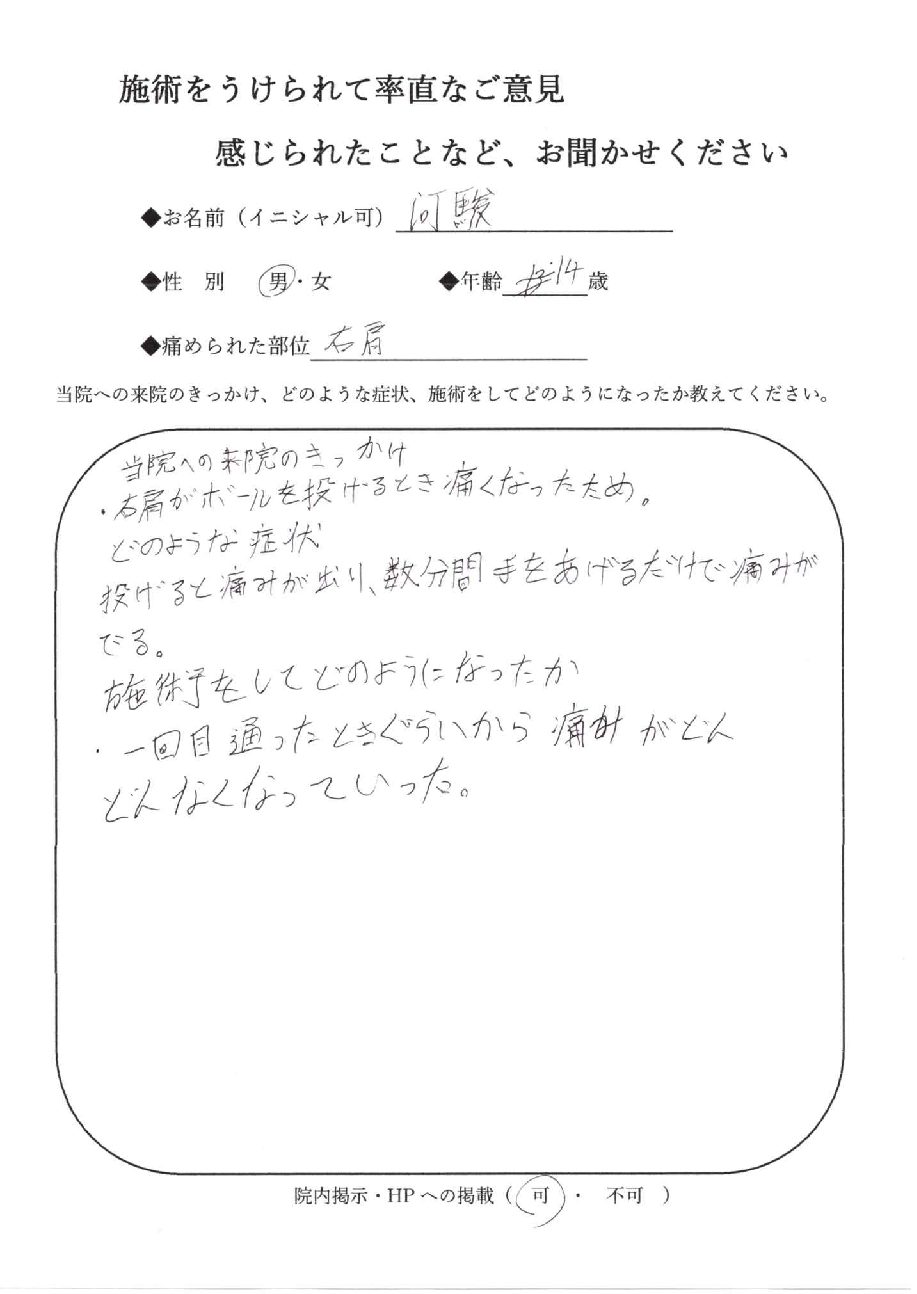 施術をうけられて率直なご意見
感じられたことなど、お聞かせください
◆お名前（イニシャル可） 河駿
◆性　別　男・女　◆年齢 14歳
◆痛められた部位 右肩
当院への来院のきっかけ、どのような症状、施術をしてどのようになったか教えてください。
当院への来院のきっかけ
・右肩がボールを投げるとき痛くなったため。
どのような症状
投げると痛みが出り、数分間手をあげるだけで痛みが
でる。
施術をしてどのようになったか
・一回目通ったときぐらいから痛みがどん
どんなくなっていった。
院内掲示・HPへの掲載（　可　・　不可　）